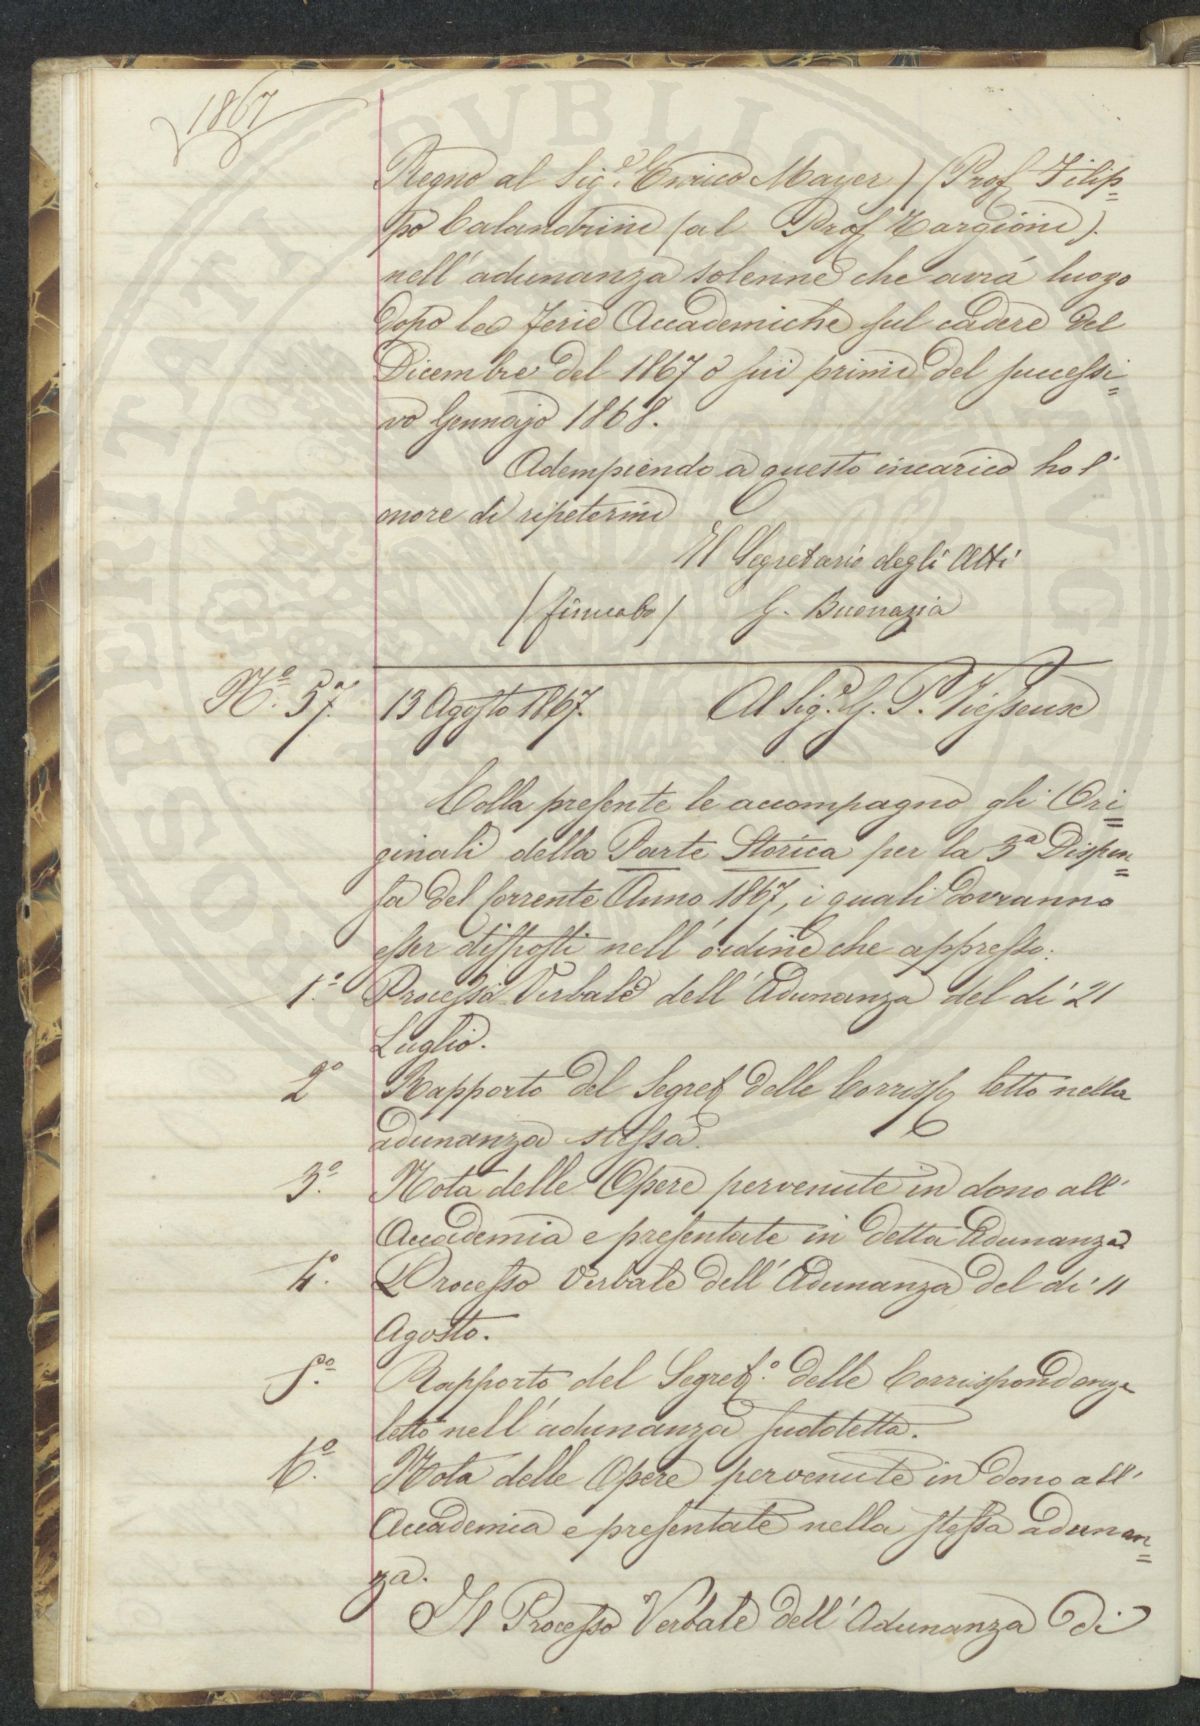 1867
Regno al Sig.r Enrico Mayer) (Prof Filip=
po Calandrini (al Prof Targioni).
nell'adunanza solenne che avrà luogo
dopo le Ferie Accademiche sul cadere del
Dicembre del 1867 o sui primi del successi=
vo Gennajo 1868.
Adempiendo a questo incarico ho l'
onore di ripetermi
Il Segretario degli Atti
(firmato) G. Buonazia
N.o 57. 13 Agosto 1867. Al Sig.r G. P. Vieusseux
Colla presente le accompagno gli Ori=
ginali della Parte Storica per la 3a Dispen=
sa del Corrente Anno 1867, i quali dovranno
esser disposti nell'ordine che appresso:
1.o Processo Verbale dell'Adunanza del dì 21
Luglio.
2o Rapporto del Segret delle Corrisp letto nella
adunanza stessa.
3.o Nota delle Opere pervenute in dono all'
Accademia e presentate in detta Adunanza
4.o Processo Verbale dell'Adunanza del dì 11
Agosto.
5.o Rapporto del Segret.o delle Corrispondenze
letto nell'adunanza sudetta.
6.o Nota delle Opere pervenute in dono all'
Accademia e presentate nella stessa adunan=
za.
Il Processo Verbale dell'Adunanza di